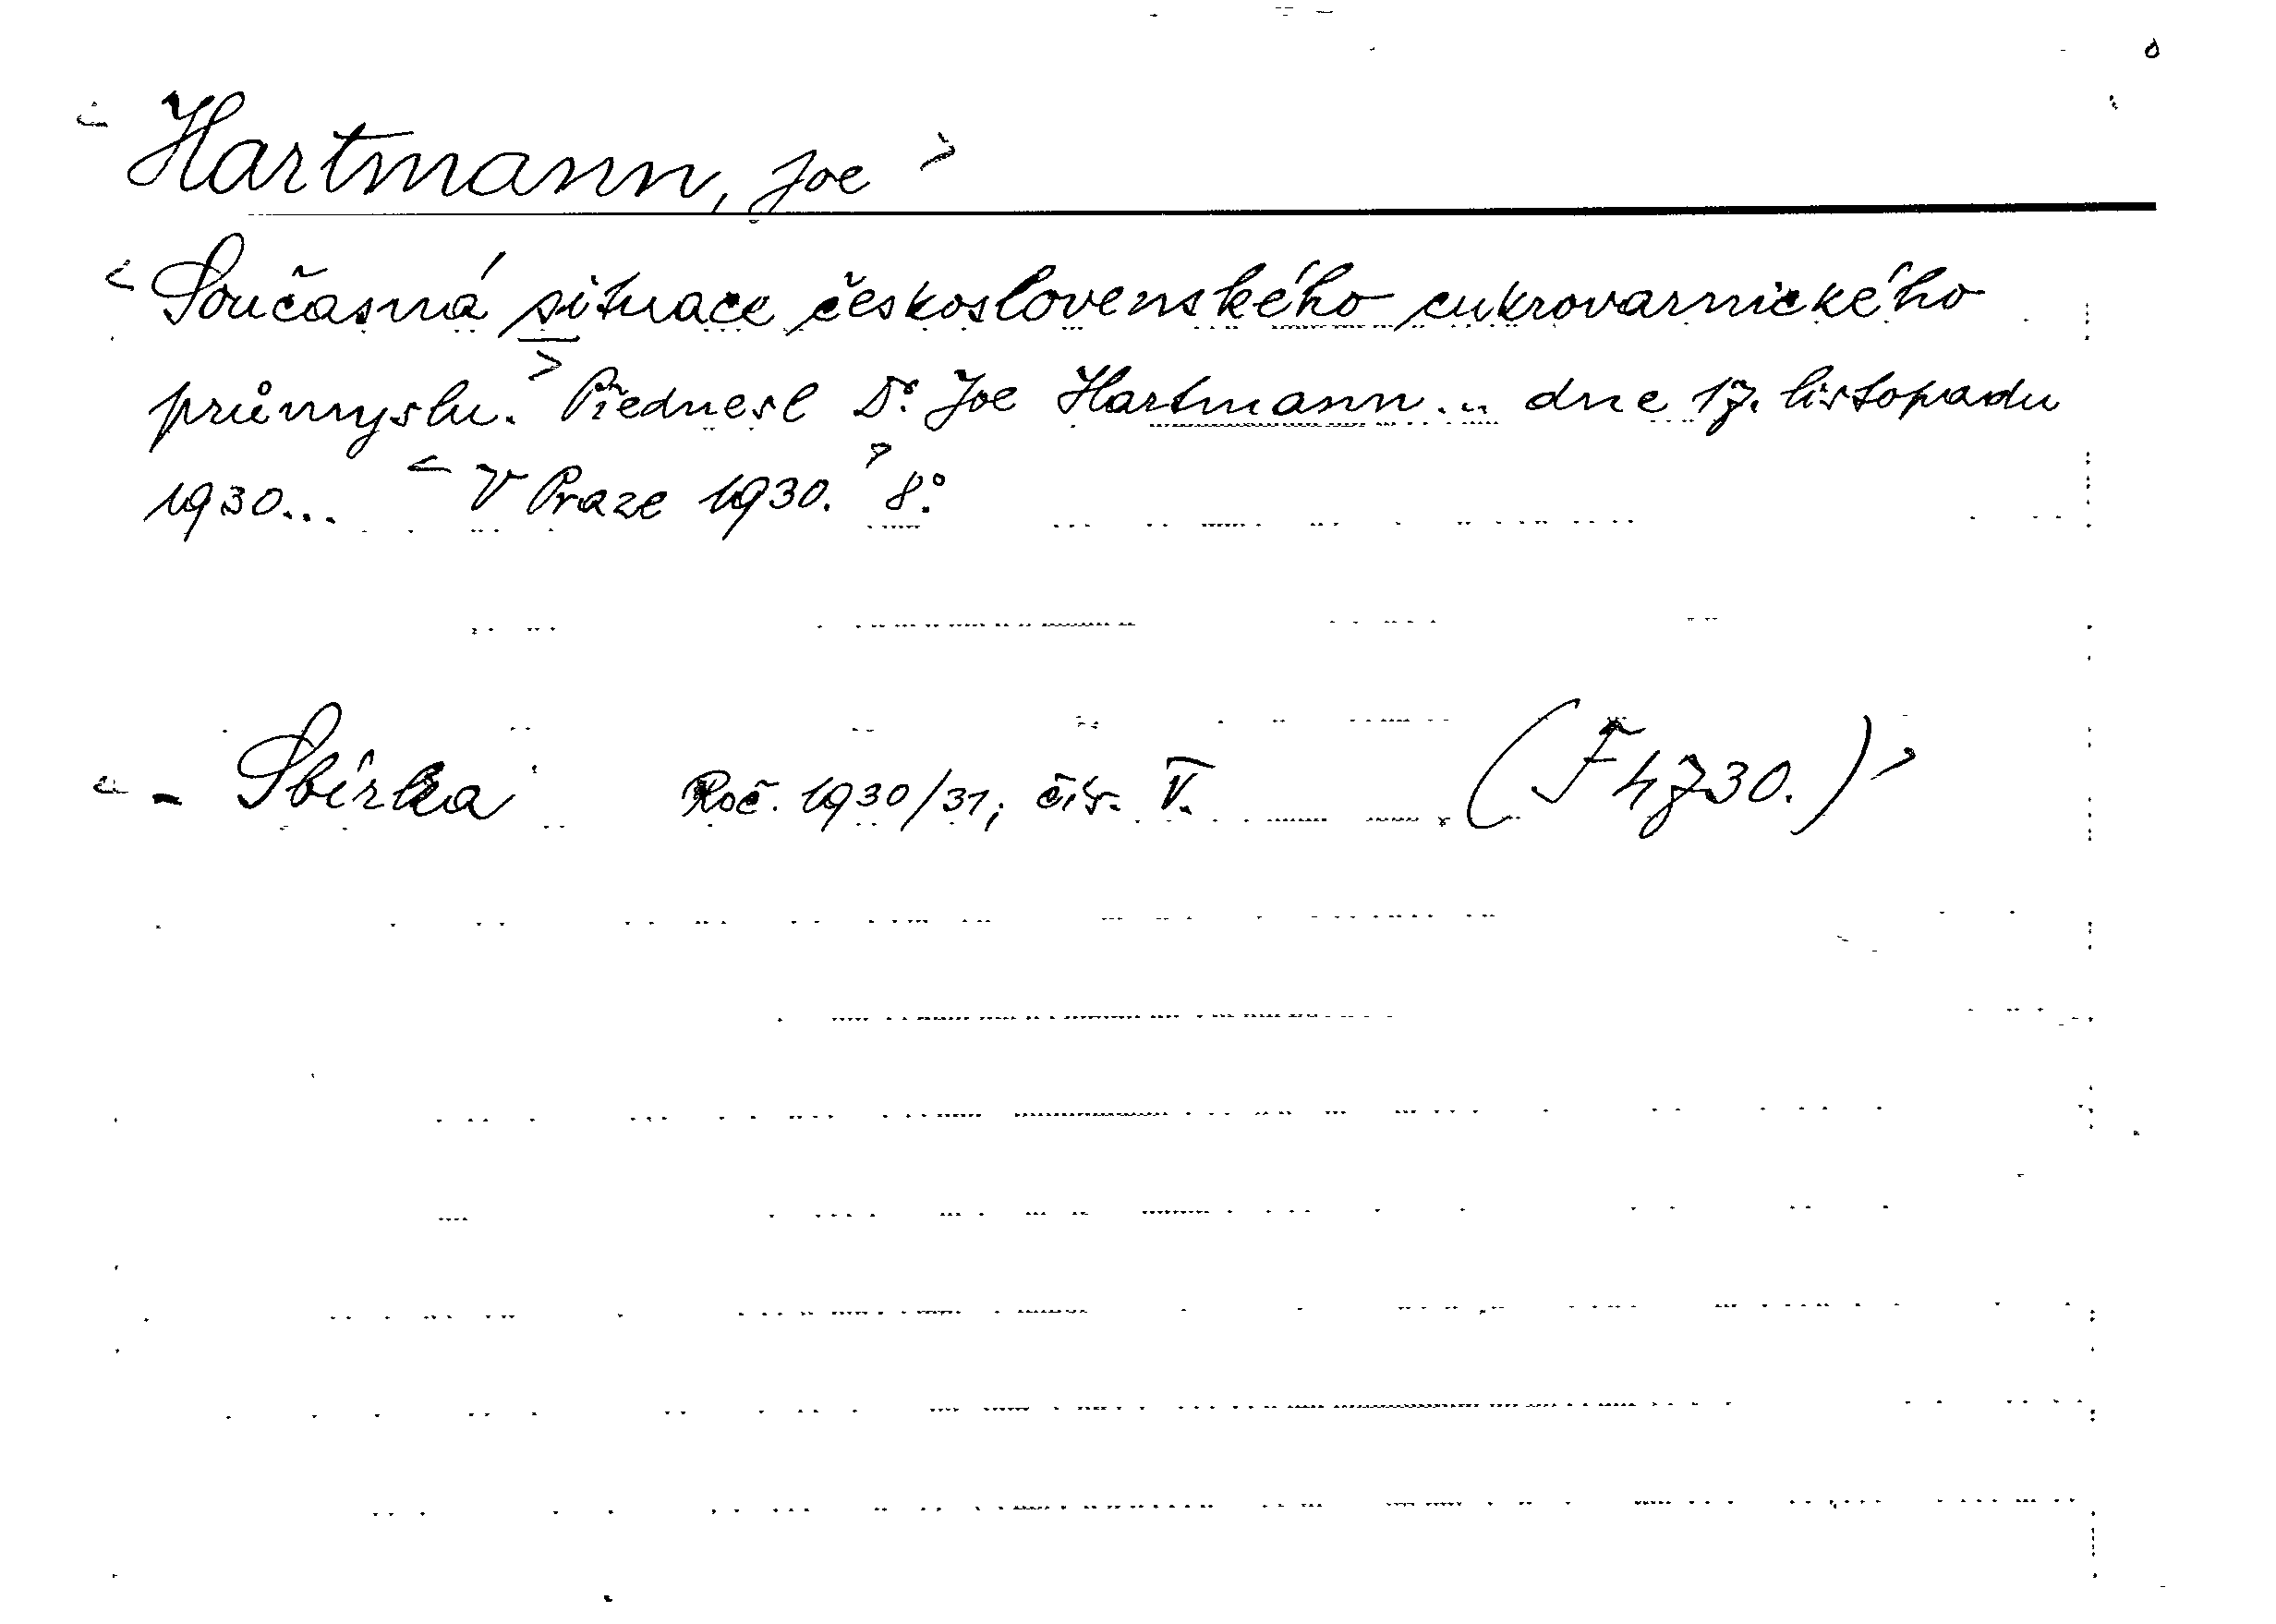 Hartmann, Joe
Současná situace československého cukrovarnického
průmyslu. Přednesl Dr. Joe Hartmann... dne 17. listopadu
1930... V Praze 1930. 8°.
- Sbírka Roč. 1930/31, čís. V. (F 4730.)